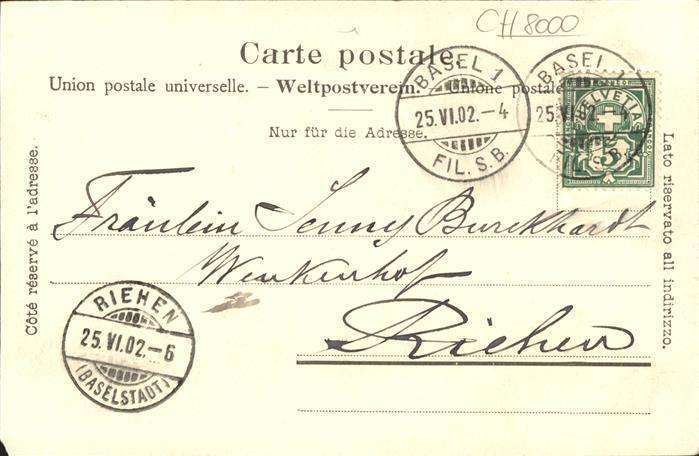 CH 8000
Carte postale.
Union postale universelle. – Weltpostverein. – Unione postale
Nur für die Adresse.
BASEL 1
25.VI.02.–4
FIL. S. B.
BASEL 1
25.VI.02.
HELVETIA
5
Côté réservé à l'adresse.
Lato riservato all indirizzo.
Fräulein Jenny Burckhardt
Wenkenhof
Riehen
RIEHEN
25.VI.02.–6
(BASELSTADT)